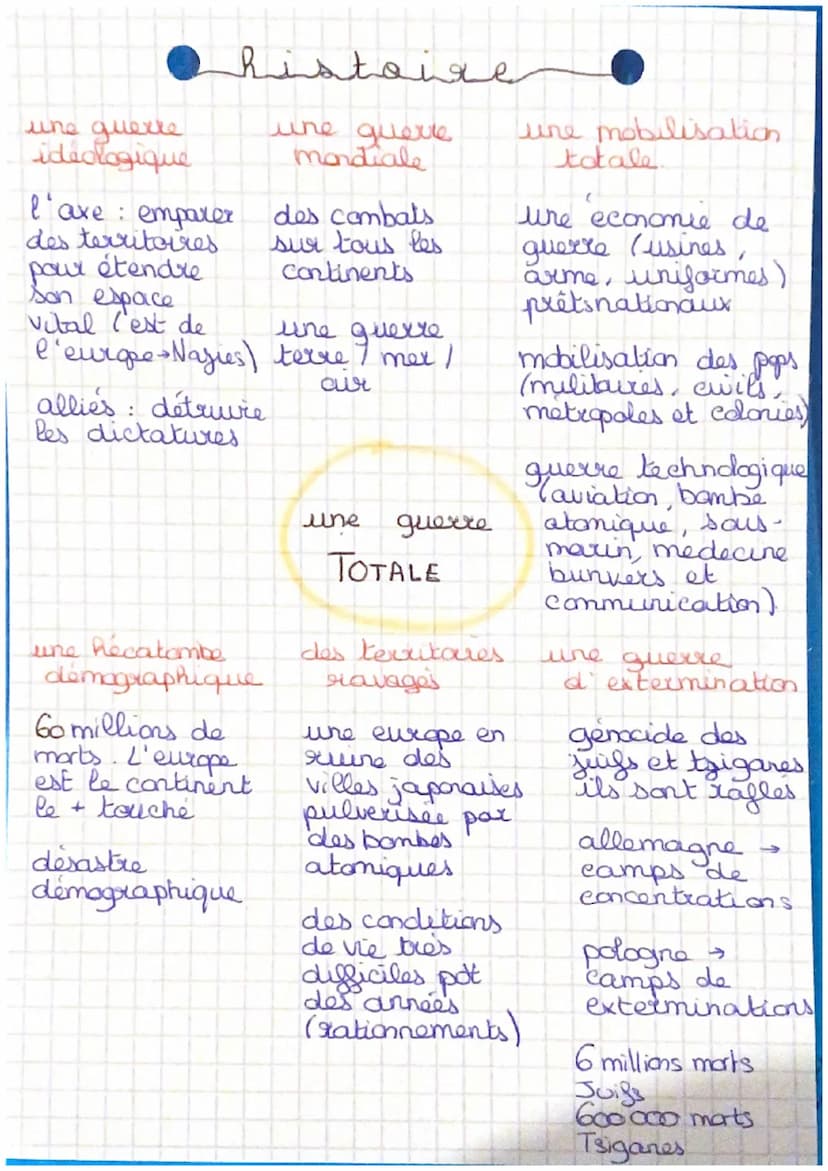 histoire
une guerre
idéologique
l'axe : emparer
des territoires
pour étendre
son espace
vital (est de
l'europe→Nazies)
alliés : détruire
les dictatures
une guerre
mondiale
des combats
sur tous les
continents
une guerre
terre / mer /
air
une mobilisation
totale.
une économie de
guerre (usines,
arme, uniformes)
prêts nationaux
mobilisation des pops
(militaires, civils,
métropoles et colonies)
guerre technologique
(aviation, bombe
atomique, sous-
marin, médecine
bunvers et
communication)
une guerre
TOTALE
une hécatombe
démographique
60 millions de
morts. L'europe
est le continent
le + touché
désastre
démographique
des territoires
ravagés
une europe en
ruine des
villes japonaises
pulverisée par
des bombes
atomiques
des conditions
de vie très
difficiles pdt
des années
(rationnements)
une guerre
d'extermination
génocide des
juifs et tziganes
ils sont rafles
allemagne →
camps de
concentrations
pologne →
camps de
exterminations
6 millions morts
Juifs
600 000 morts
Tsiganes